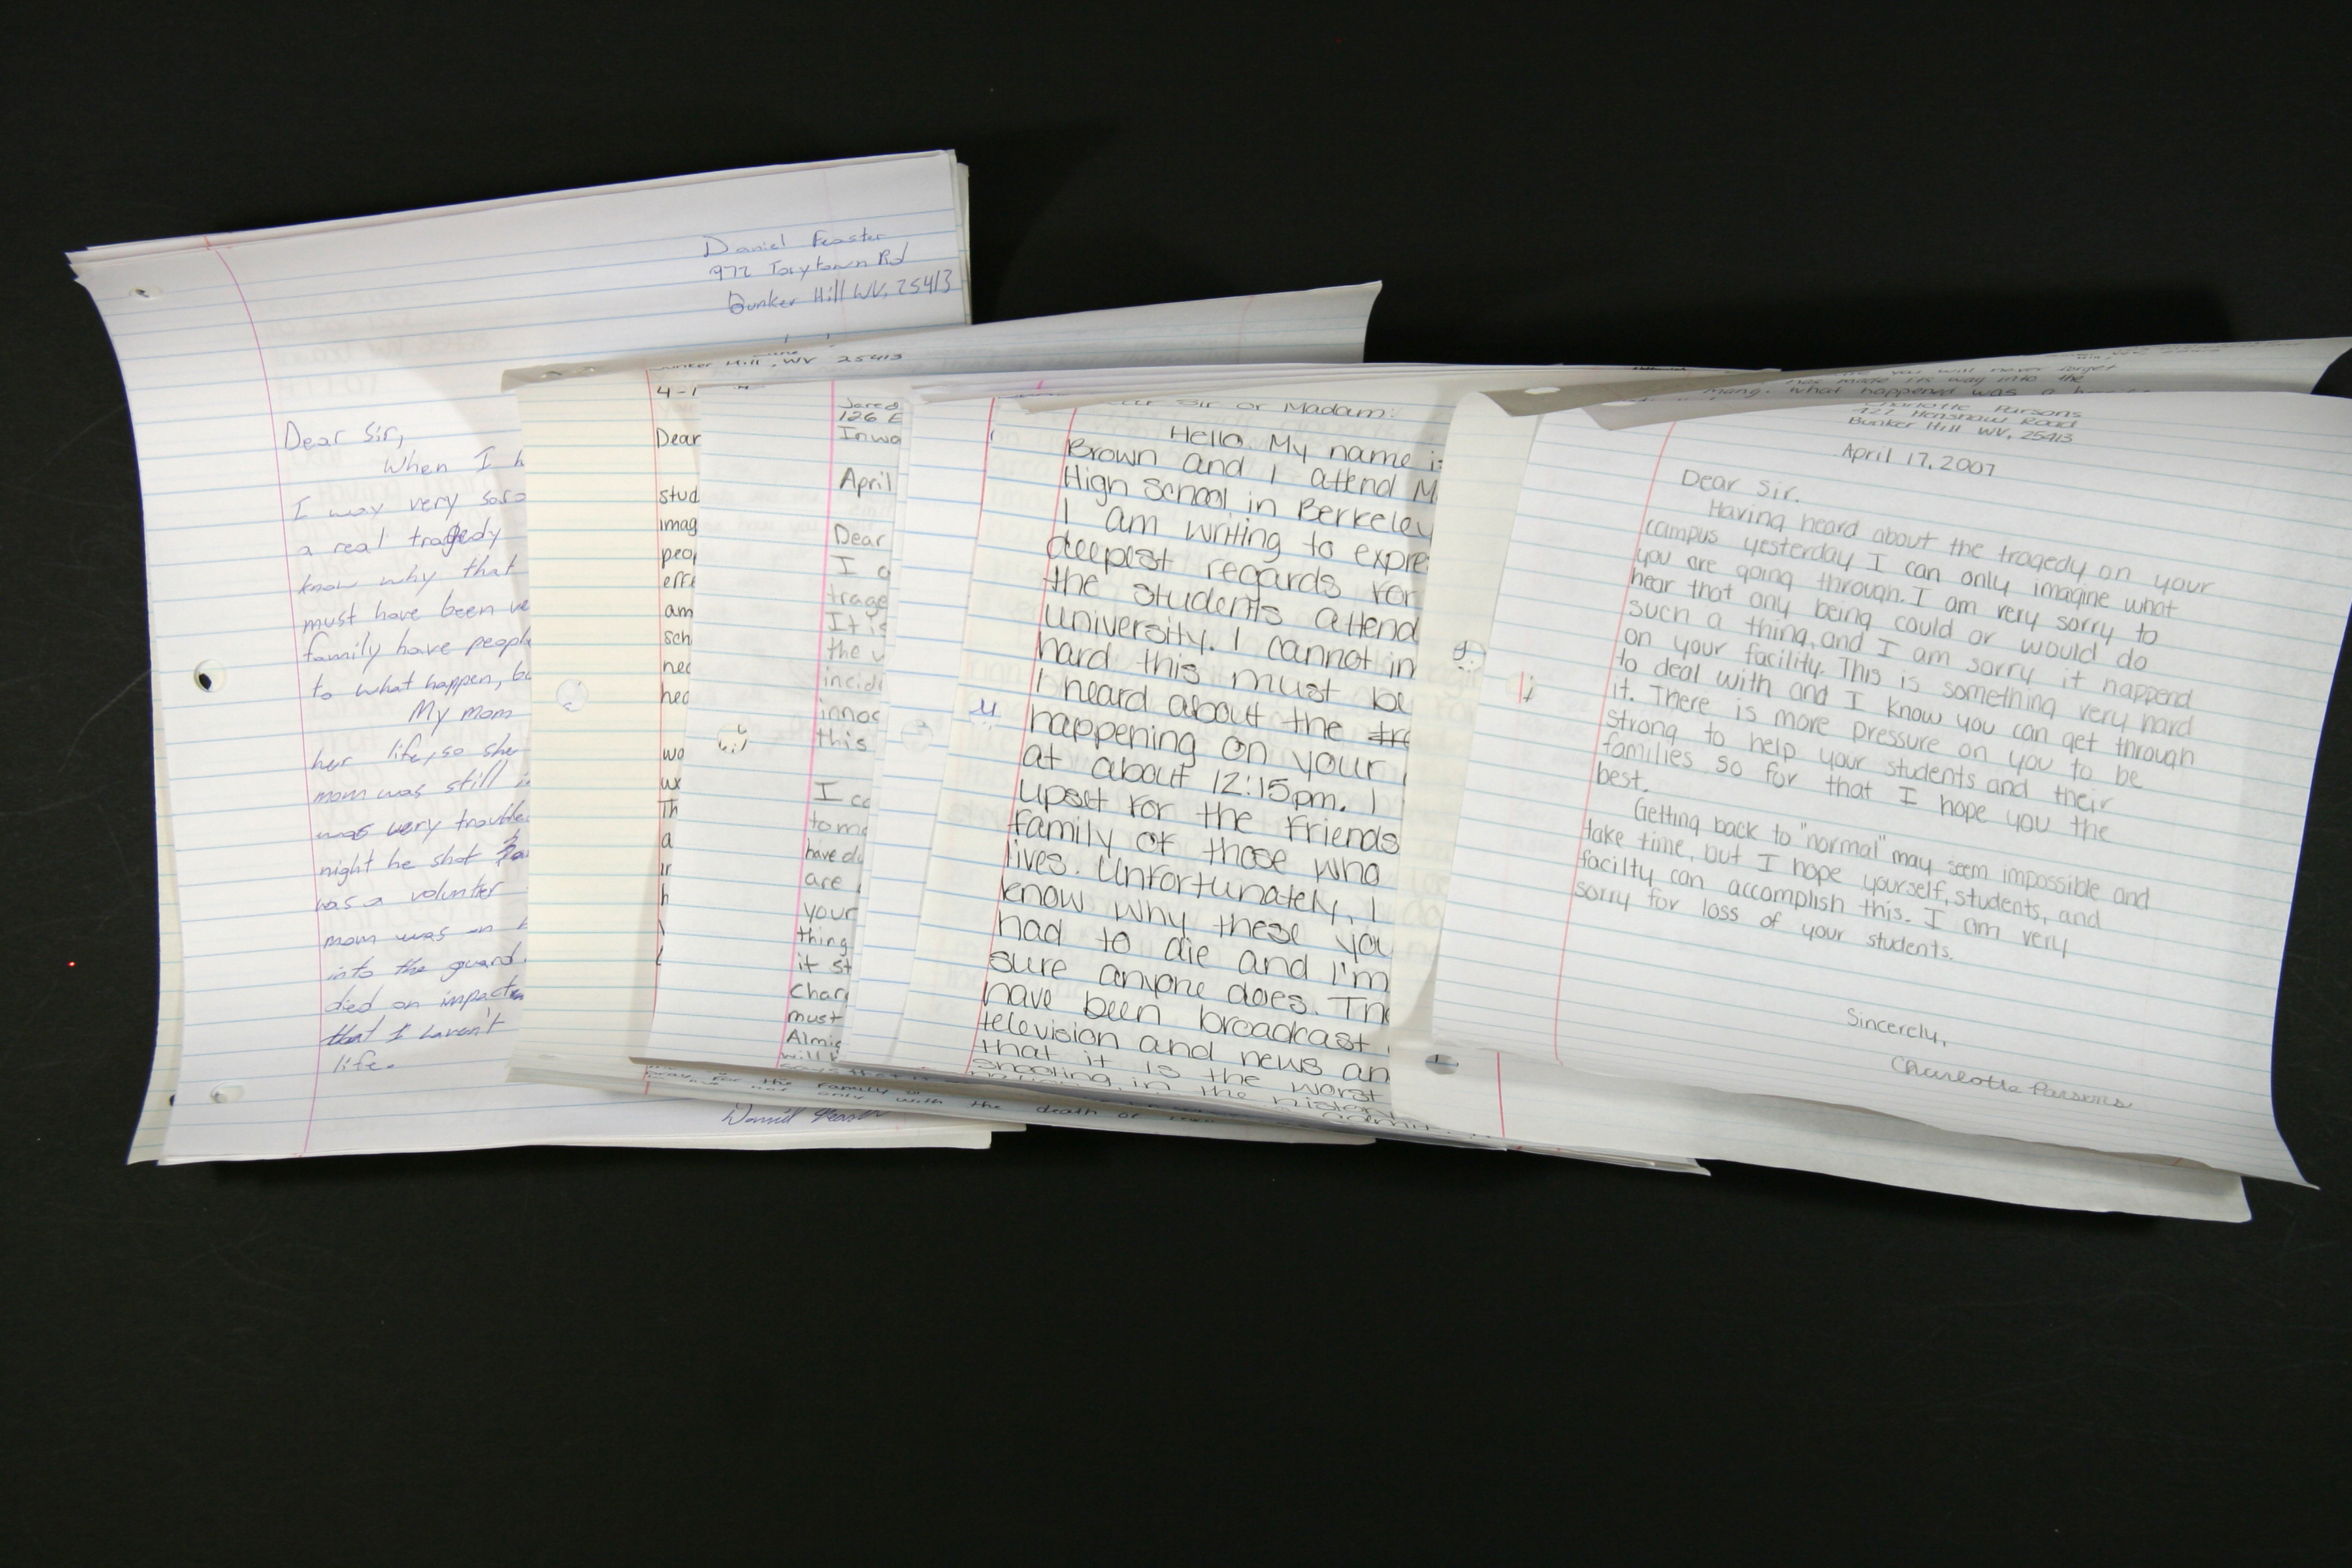 Daniel Feaster
972 Torytown Rd
Bunker Hill WV, 25413
Dear Sir,
When I h
I way very soro
a real tragedy
know why that
must have been ve
family have people
to what happen, bu
My mom
her life, so she
mom was still i
was very trouble
night he shot
was a volunter
mom was on
into the guard
died on impact
that I haven't
life.
Hill, WV 25413
Dear
stud
imag
peop
effe
am
sch
hea
hea
wo
Th
a
h
pray for the family
not only with the death of
Jared
126 E
Inwo
April
Dear
I
trage
It is
the v
incide
innoc
this
I co
tomo
have di
are
your
thing
it st
Char
must
Almig
will
Sir or Madam:
Hello. My name is
Brown and I attend M
High School in Berkeley
I am writing to expre
deepest regards for
the students attend
university. I cannot im
hard this must be
I heard about the tra
happening on your
at about 12:15pm. I
upset for the friends
family of those who
lives. Unfortunately, I
know why these you
had to die and I'm
sure anyone does. The
have been broadcast
television and news an
that it is the worst
shooting in the history
you will never forget
has made its way into the
many. what happened was a
Charlotte Parsons
427 Henshaw Road
Bunker Hill WV, 25413
April 17, 2007
Dear Sir.
Having heard about the tragedy on your
campus yesterday I can only imagine what
you are going through. I am very sorry to
hear that any being could or would do
such a thing, and I am sorry it happend
on your facility. This is something very hard
to deal with and I know you can get through
it. There is more pressure on you to be
strong to help your students and their
families so for that I hope you the
best.
Getting back to "normal" may seem impossible and
take time, but I hope yourself, students, and
facilty can accomplish this. I am very
sorry for loss of your students.
Sincerely,
Charlotte Parsons